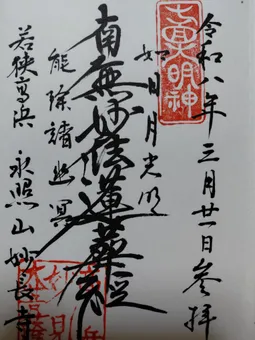 令和八年三月廿一日参拝
如日月光明
南無妙法蓮華経
能除諸幽冥
若狭高浜 永照山妙長寺
明神